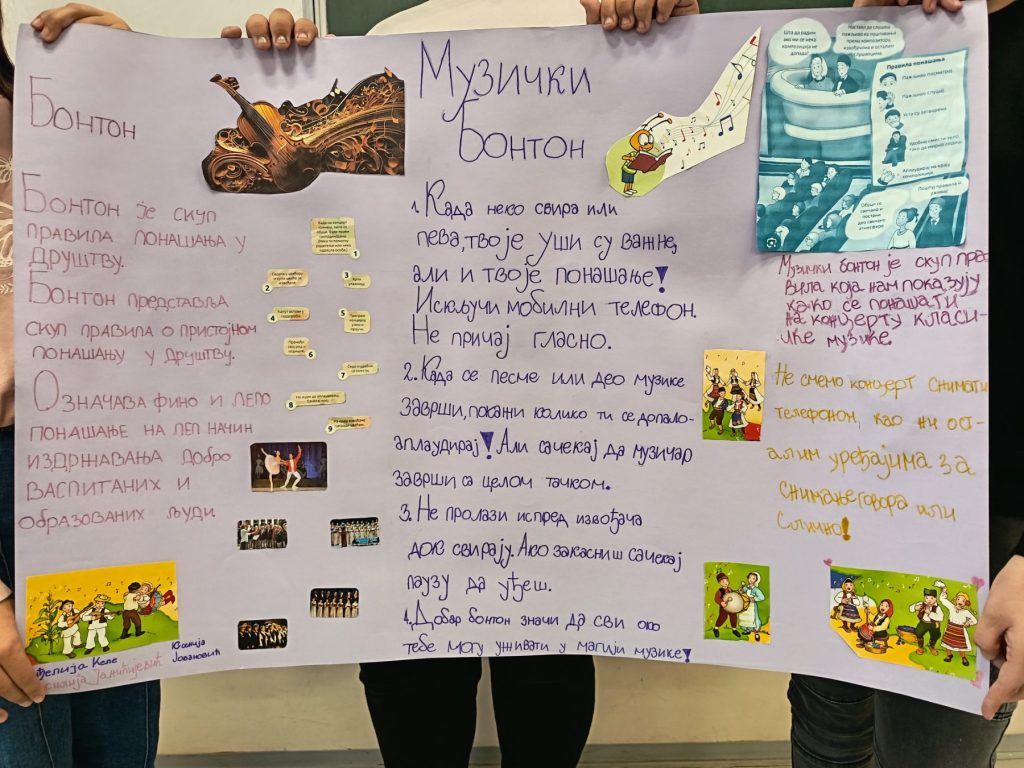 Бонтон
Бонтон је скуп
правила понашања у
друштву.
Бонтон представља
скуп правила о пристојном
понашању у друштву.
Означава фино и лепо
понашање на леп начин
издржавања добро
васпитаних и
образованих људи
1
2
3
4
5
6
7
8
9
Ксенија
Јовановић
Музички
Бонтон
1. Када неко свира или
пева, твоје уши су важне,
али и твоје понашање!
Искључи мобилни телефон.
Не причај гласно.
2. Када се песме или део музике
заврши, покажи колико ти се допало-
аплаудирај! Али сачекај да музичар
заврши са целом тачком.
3. Не пролази испред извођача
док свирају. Ако закасниш сачекај
паузу да уђеш.
4. Добар бонтон значи да сви око
тебе могу уживати у магији музике!
Шта да радим
ако ми се нека
композиција не
допада?
Настави да слушаш
пажљиво из поштовања
према композитору,
извођачима и осталим
слушаоцима.
Правила понашања
Пажљиво посматрај
Пажљиво слушај
Уста су затворена
Удобно смести тело,
тако да мирно седиш
Аплаудирај на крају
композиције
Поштуј правила и
уживај!
Обуци се
свечано и
постани
део свечане
атмосфере
Музички бонтон је скуп пра-
вила која нам показују
како се понашати
на концерту класи-
чке музике.
Не смемо концерт снимати
телефоном, као ни ост-
алим уређајима за
снимање говора или
слично!